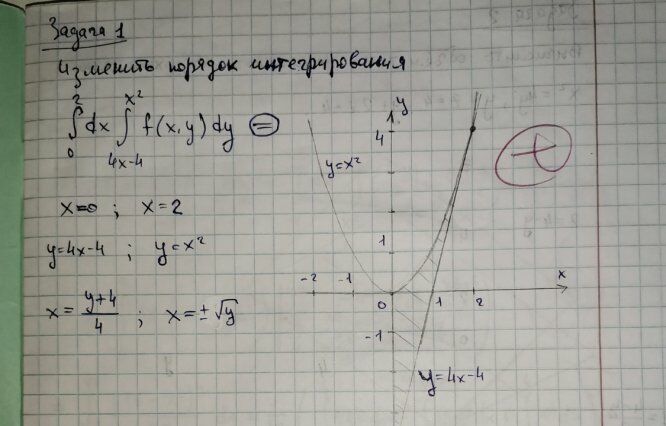 Задача 1
Изменить порядок интегрирования
∫₀² dx ∫_{4x-4}^{x²} f(x,y) dy =
x=0 ; x=2
y=4x-4 ; y=x²
x = (y+4)/4 ; x = ±√y
y
4
y=x²
1
-2 -1 0 1 2 x
-1
y=4x-4